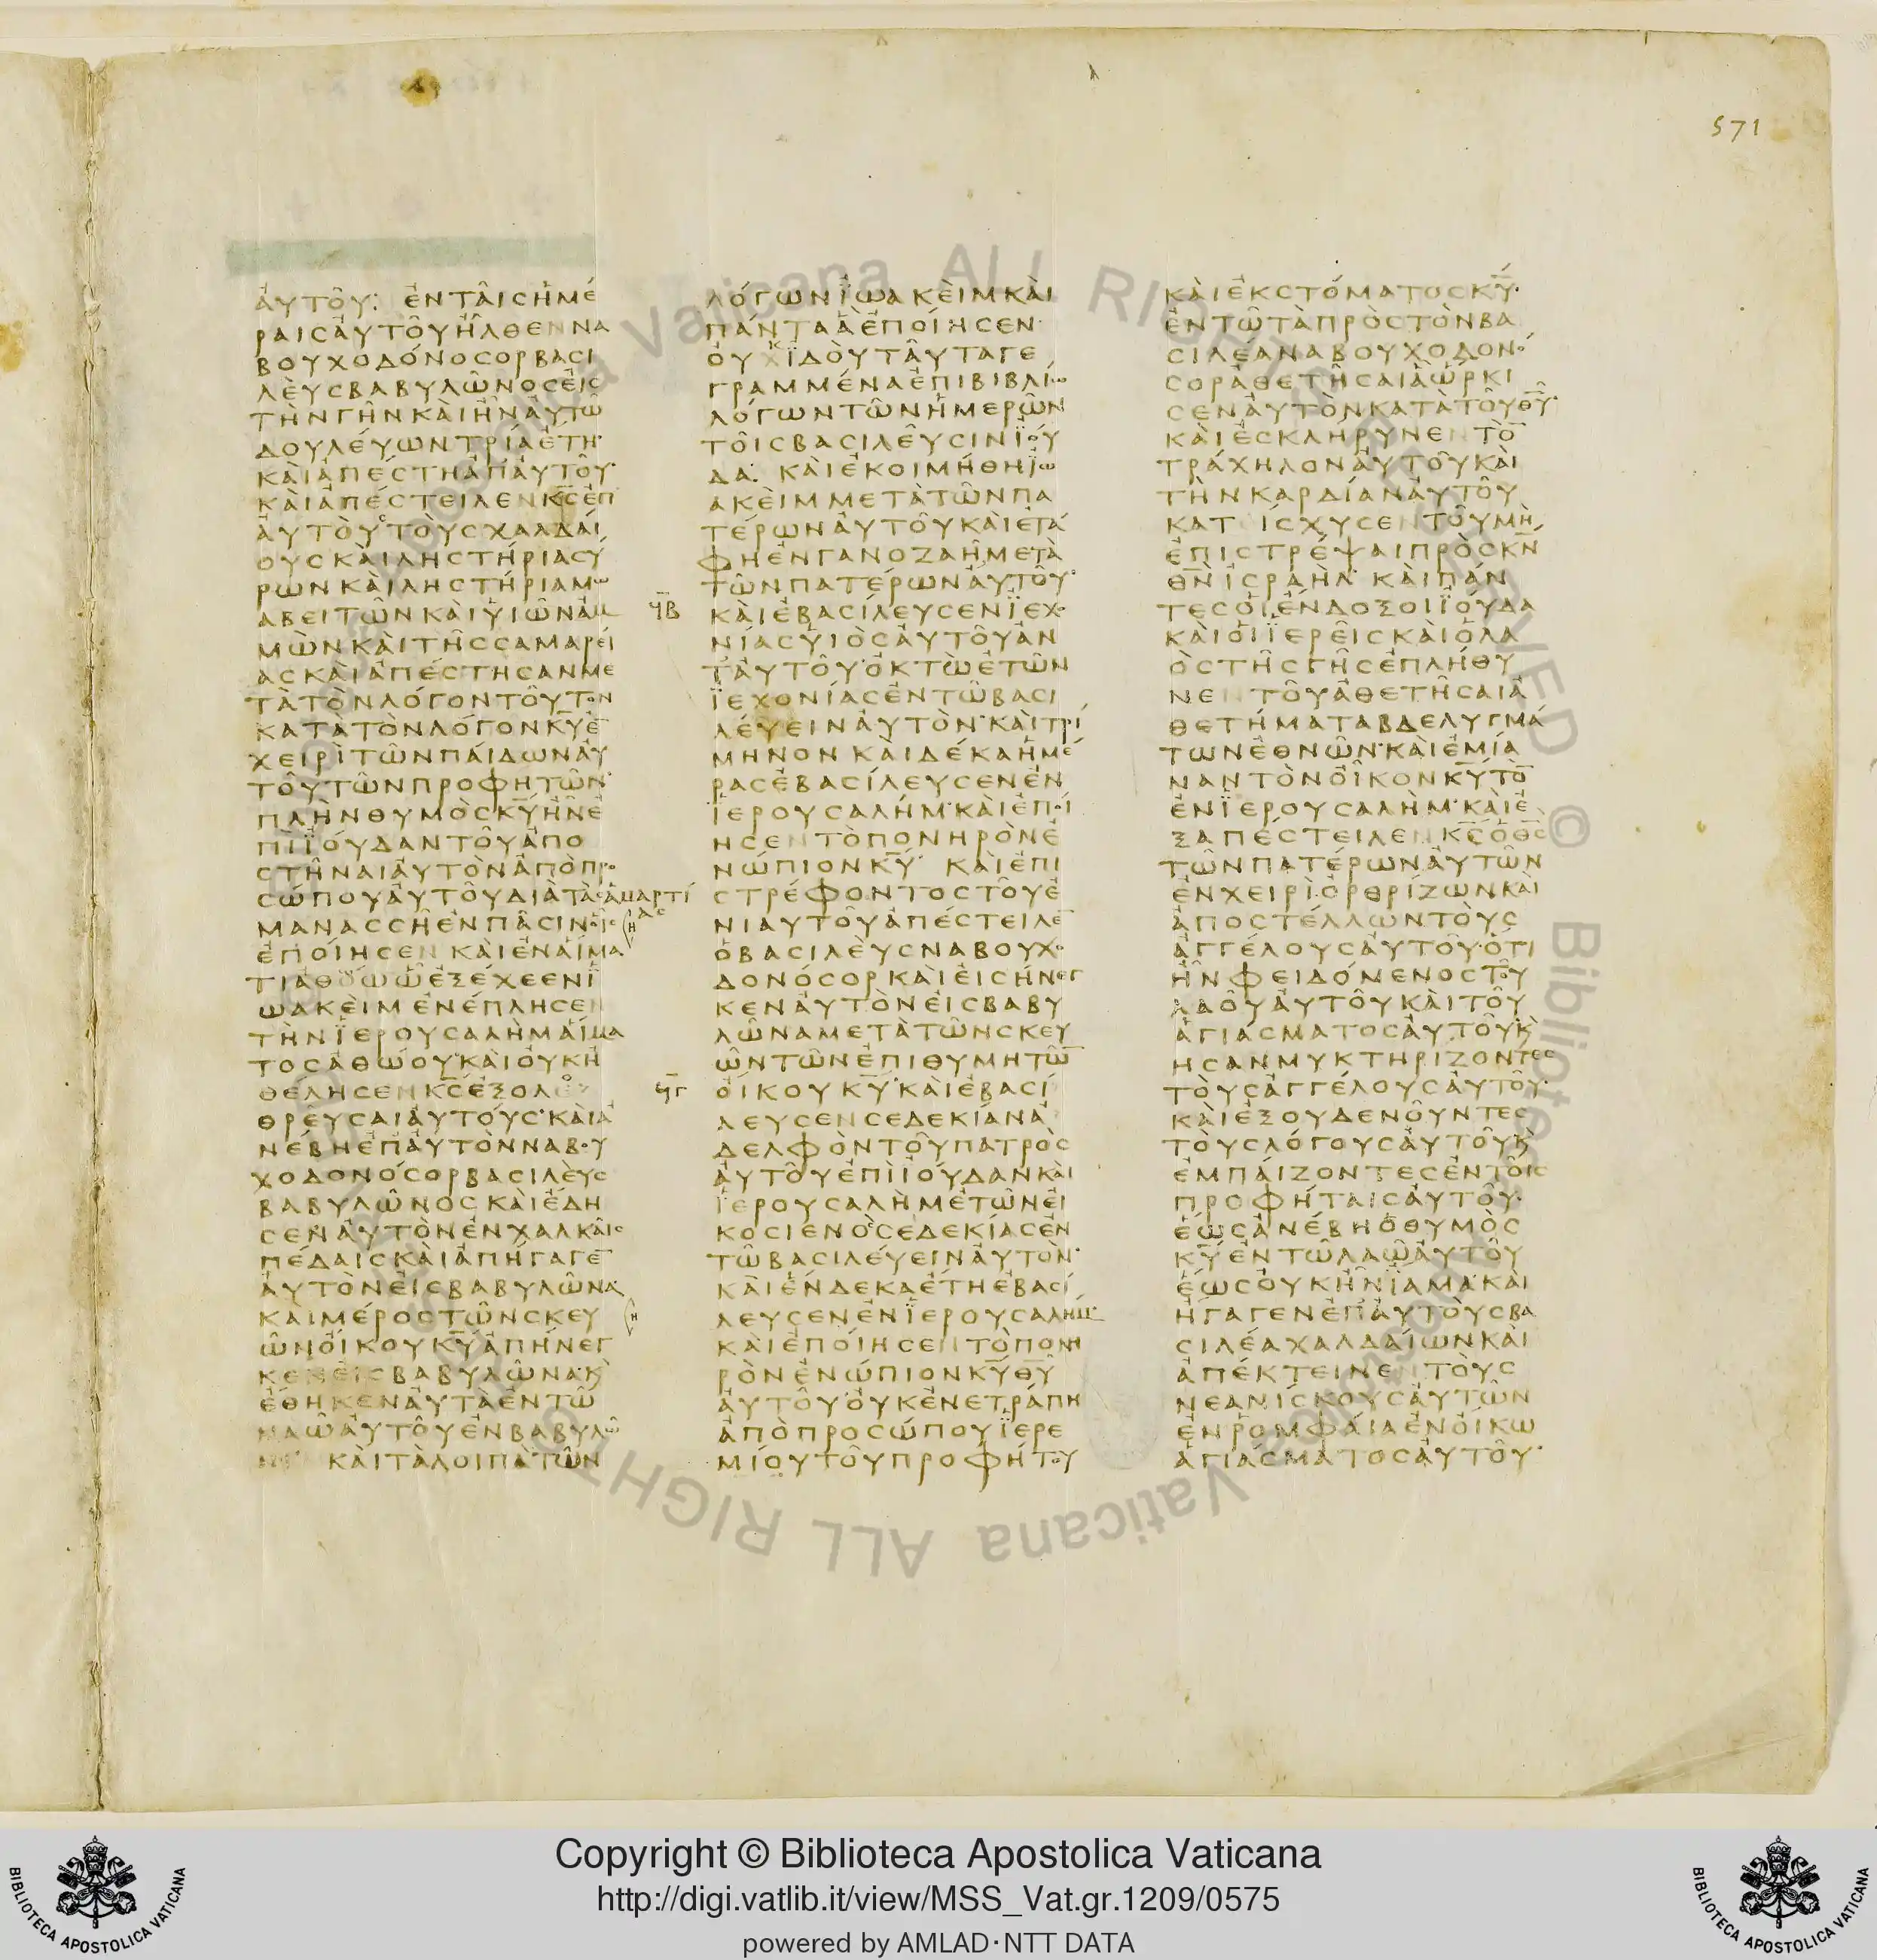 571
ἀυτοῦ: ἐν τᾶισ ἡμέ
ραισ ἀυτοῦ ἦλθεν να
βουχοδόνοσορ βασι
λὲυσ βαβυλῶνοσ ἐισ
τὴν γῆν κὰι ἦν ἀυτῶ
δουλέυων τρία έτη·
κὰι ἀπέστη ἀπ ἀυτοῦ·
κὰι ἀπέστειλεν κ̅σ̅ ἐπ
ἀυτὸυσ τὸυσ χαλδάι
ουσ κὰι ληστήρια σύ
ρων κὰι ληστήρια μω
αβειτῶν κὰι ὑιῶν ἀμ
μὼν κὰι τῆσ σαμαρεί
ασ κὰι ἀπέστησαν με
τὰ τὸν λόγον τοῦτον
κατὰ τὸν λόγον κ̅υ̅ ἐ
χειρὶ τῶν πάιδων ἀυ
τοῦ τῶν προφητῶν·
πλὴν θυμὸσ κ̅υ̅ ἦν ἐ
πὶ ϊούδαν τοῦ ἀπο
στῆναι ἀυτὸν ἀπὸ προ
σώπου ἀυτοῦ διὰ τὰσ ἁμαρτί
ασ
μανασσῆ ἐν πᾶσιν οἷσ
ἐποίησεν κὰι ἐν αἵμα
τι ἀθώω ῶ ἐξέχεεν ϊ
ωακὲιμ ἐνέπλησεν
τὴν ϊερουσαλὴμ αἵμα
τοσ ἀθώου· κὰι ὀυκ ἠ
θέλησεν κ̅σ̅ ἐξολο
θρέυσαι ἀυτόυσ· κὰι ἀ
νέβη ἐπ ἀυτὸν ναβου
χοδονόσορ βασιλὲυσ
βαβυλῶνοσ κὰι έδη
σεν ἀυτὸν ἐν χαλκᾶισ
πέδαισ κὰι ἀπήγαγε̅
ἀυτὸν ἐισ βαβυλῶνα·
και μέροσ τῶν σκευ
ῶν οίκου κ̅υ̅ ἀπήνεγ
κεν ἐισ βαβυλῶνα· κ̀
έθηκεν ἀυτὰ ἐν τῶ
ναῶ ἀυτοῦ ἐν βαβυλῶ
νι· κὰι τὰ λοιπὰ τῶν
λόγων ϊωακὲιμ κὰι
πάντα ἃ ἐποίησεν·
ὀυκ ϊδὸυ ταῦτα γε
γραμμένα ἐπι βιβλίω
λόγων τῶν ἡμερῶν
τοῖσ βασιλεῦσιν ϊού
δα: κὰι ἐκοιμήθη ϊω
ακὲιμ μετὰ τῶν πα
τέρων ἀυτοῦ κὰι ετά
φη ἐν γανοζαῆ μετὰ
τῶν πατέρων ἀυτοῦ·
ϟ̅β̅ κὰι ἐβασίλευσεν ϊεχο
νίασ ὑιὸσ ἀυτοῦ ἀν
τ ἀυτοῦ· ὀκτὼ ἐτῶν
ϊεχονίασ ἐν τῶ βασι
λέυειν ἀυτὸν· κὰι τρί
μηνον κὰι δέκα ἡμέ
ρασ ἐβασίλευσεν ἐν
ϊερουσαλήμ· κὰι ἐποί
ησεν τὸ πονηρὸν ἐ
νώπιον κ̅υ̅· κὰι ἐπι
στρέφοντοσ τοῦ ἐ
νιαυτοῦ ἀπέστειλε̅
ὁ βασιλὲυσ ναβουχο
δονόσορ κὰι ἐισήνεγ
κεν ἀυτὸν ἐισ βαβυ
λῶνα μετὰ τῶν σκευ
ῶν τῶν ἐπιθυμητῶ̅
ϟ̅γ̅ οίκου κ̅υ̅· κὰι ἐβασί
λευσεν σεδεκίαν ἀ
δελφὸν τοῦ πατρὸσ
ἀυτοῦ ἐπὶ ϊούδαν κὰι
ϊερουσαλὴμ ἐτῶν εἰ
κοσι ενὸσ σεδεκίασ ἐν
τῶ βασιλέυειν ἀυτὸν·
κὰι ἕνδεκα έτη ἐβασί
λευσεν ἐν ϊερουσαλήμ·
κὰι ἐποίησεν τὸ πονη
ρὸν ἐνώπιον κ̅υ̅ θ̅υ̅
ἀυτοῦ· ὀυκ ἐνετράπη
ἀπὸ προσώπου ϊερε
μίου τοῦ προφήτου
κὰι ἐκ στόματοσ κ̅υ̅·
ἐν τῶ τὰ πρὸσ τὸν βα
σιλέα ναβουχοδονό
σορ ἀθετῆσαι ἃ ὥρκι
σεν ἀυτὸν κατὰ τοῦ θ̅υ̅·
κὰι ἐσκλήρυνεν τὸ̅
τράχηλον ἀυτοῦ κὰι
τὴν καρδίαν ἀυτοῦ
κατίσχυσεν τοῦ μὴ
ἐπιστρέψαι πρὸσ κ̅ν̅
θ̅ν̅ ἰσραὴλ· κὰι πάν
τεσ οἱ ένδοξοι ϊούδα
κὰι οἱ ϊερεῖσ κὰι ὁ λα
ὸσ τῆσ γῆσ ἐπλήθυ
νεν τοῦ ἀθετῆσαι ἀ
θετήματα βδελυγμά
των ἐθνῶν· κὰι ἐμία
ναν τὸν οἶκον κ̅υ̅ τὸ̅
ἐν ϊερουσαλὴμ· κὰι ἐ
ξαπέστειλεν κ̅σ̅ ὁ θ̅σ̅
τῶν πατέρων ἀυτῶν
ἐν χειρὶ ὀρθρίζων κὰι
ἀποστέλλων τὸυσ
ἀγγέλουσ ἀυτοῦ· ὅτι
ἦν φειδόμενοσ τοῦ
λαοῦ ἀυτοῦ κὰι τοῦ
ἁγιάσματοσ ἀυτοῦ· κ̀
ῆσαν μυκτηρίζοντεσ
τὸυσ ἀγγέλουσ ἀυτοῦ·
κὰι ἐξουδενοῦντεσ
τὸυσ λόγουσ ἀυτοῦ κ̀
ἐμπάιζοντεσ ἐν τοῖσ
προφήταισ ἀυτοῦ·
ἕωσ ἀνέβη ὁ θυμὸσ
κ̅υ̅ ἐν τῶ λαῶ ἀυτοῦ
ἕωσ ὀυκ ἦν ϊαμα· κὰι
ἤγαγεν ἐπ ἀυτὸυσ βα
σιλέα χαλδάιων κὰι
ἀπέκτεινεν τὸυσ
νεανίσκουσ ἀυτῶν
ἐν ῥομφάια ἐν οίκω
ἁγιάσματοσ ἀυτοῦ·
Copyright © Biblioteca Apostolica Vaticana
http://digi.vatlib.it/view/MSS_Vat.gr.1209/0575
powered by AMLAD·NTT DATA
BIBLIOTECA APOSTOLICA VATICANA
BIBLIOTECA APOSTOLICA VATICANA